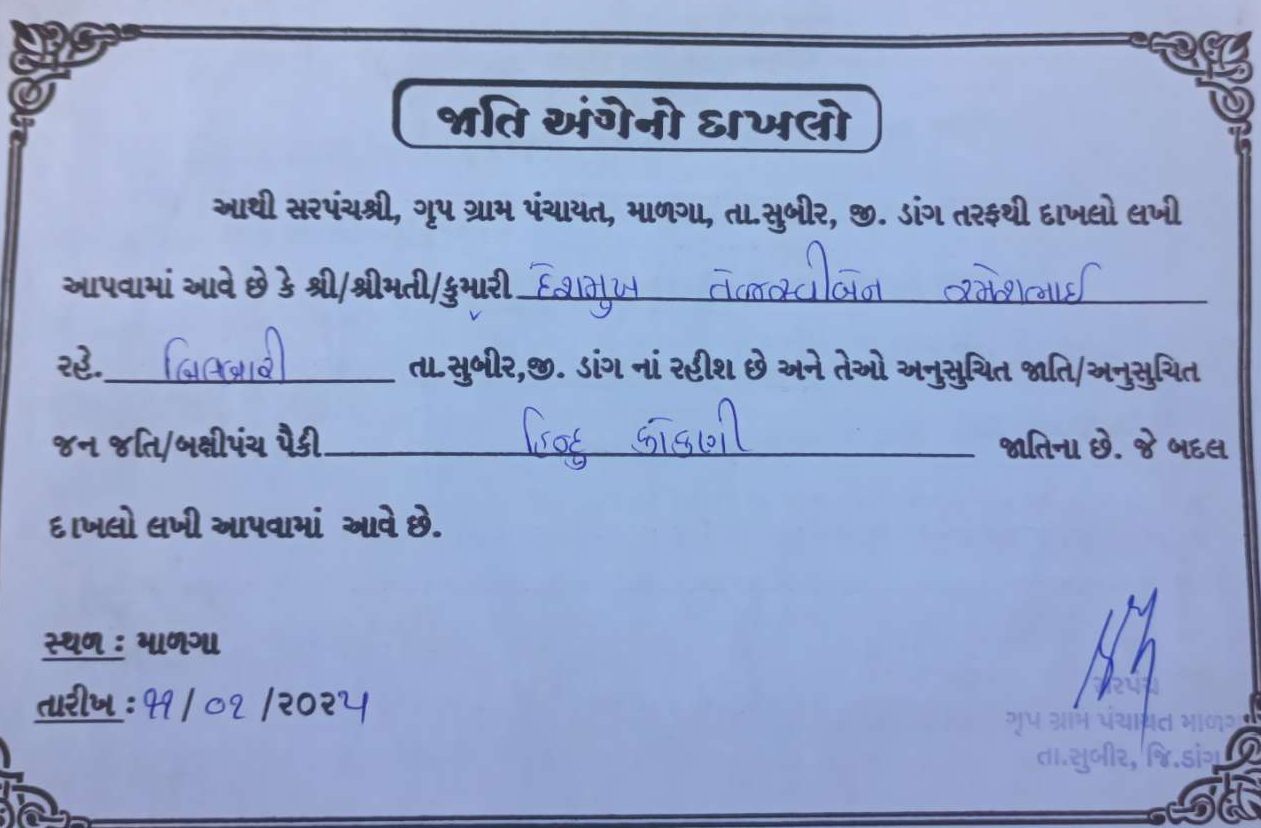 જાતિ અંગેનો દાખલો
આથી સરપંચશ્રી, ગૃપ ગ્રામ પંચાયત, માળગા, તા.સુબીર, જી. ડાંગ તરફથી દાખલો લખી
આપવામાં આવે છે કે શ્રી/શ્રીમતી/કુમારી દેશમુખ તેજસ્વીબેન રમેશભાઈ
રહે. બિલબારી તા.સુબીર,જી. ડાંગ નાં રહીશ છે અને તેઓ અનુસુચિત જાતિ/અનુસુચિત
જન જતિ/બક્ષીપંચ પૈકી હિન્દુ કોંકણી જાતિના છે. જે બદલ
દાખલો લખી આપવામાં આવે છે.
સ્થળ : માળગા
તારીખ : ૧૧/૦૨/૨૦૨૫
સરપંચ
ગૃપ ગ્રામ પંચાયત માળગા
તા.સુબીર, જિ.ડાંગ